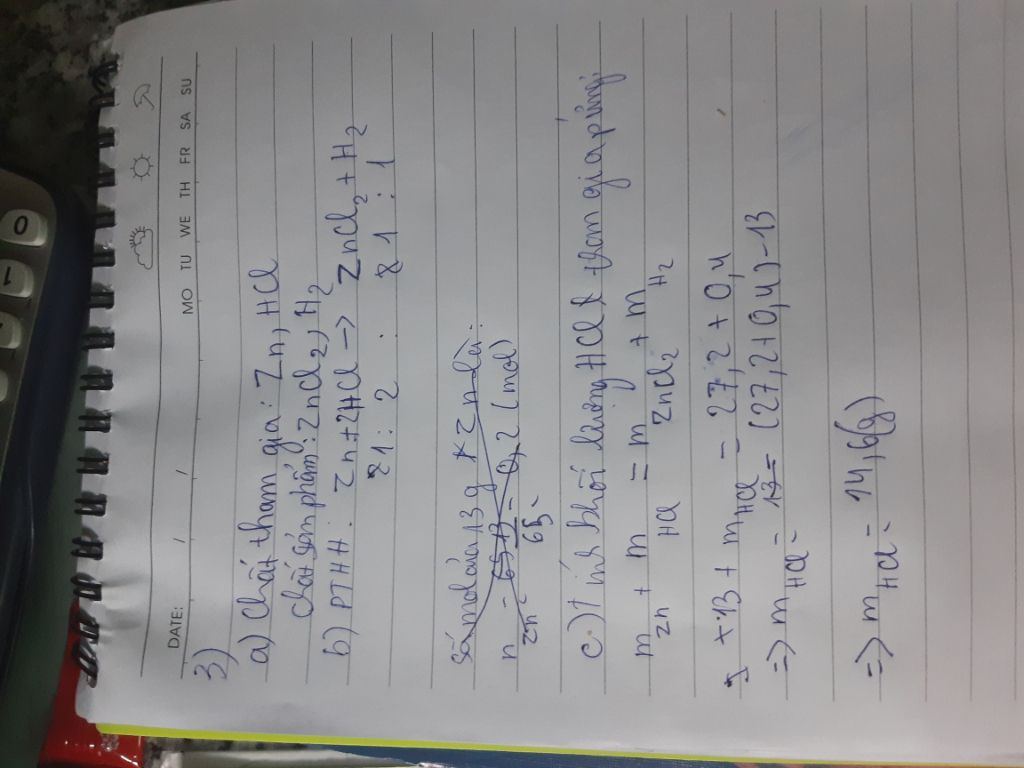 DATE: / /
MO TU WE TH FR SA SU
3)
a) Chất tham gia: Zn, HCl
Chất sản phẩm: ZnCl2, H2
b) PTHH: Zn + 2HCl → ZnCl2 + H2
1 : 2 : 1 : 1
Số mol của 13 g Zn là:
n Zn = 13/65 = 0,2 (mol)
c) tính khối lượng HCl tham gia p/ứng:
mZn + mHCl = mZnCl2 + mH2
13 + mHCl = 27,2 + 0,4
=> mHCl = (27,2 + 0,4) - 13
=> mHCl = 14,6(g)
0
1